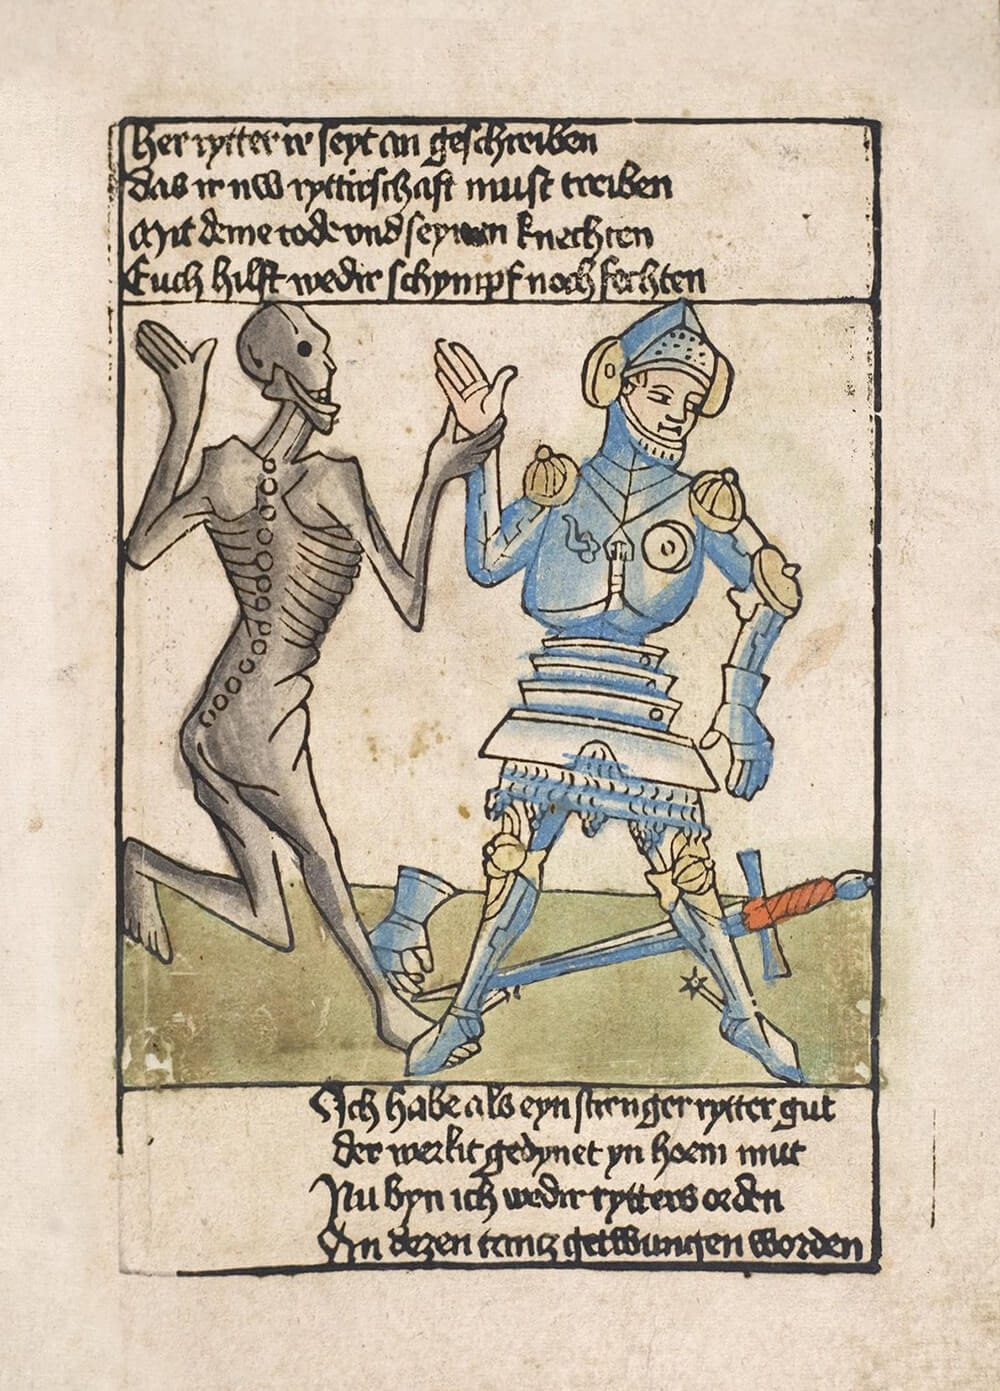 Her rytter ir seyt an geschreiben
das ir nw ryttirschaft must treiben
Mit deme tode vnd seynen knechten
Euch hilft wedir schympf noch fechten
Ich habe als eyn strenger rytter gut
der werlit gedynet yn hoem mut
Nu byn ich wedir rytters orden
An dezen tantz getwungen worden